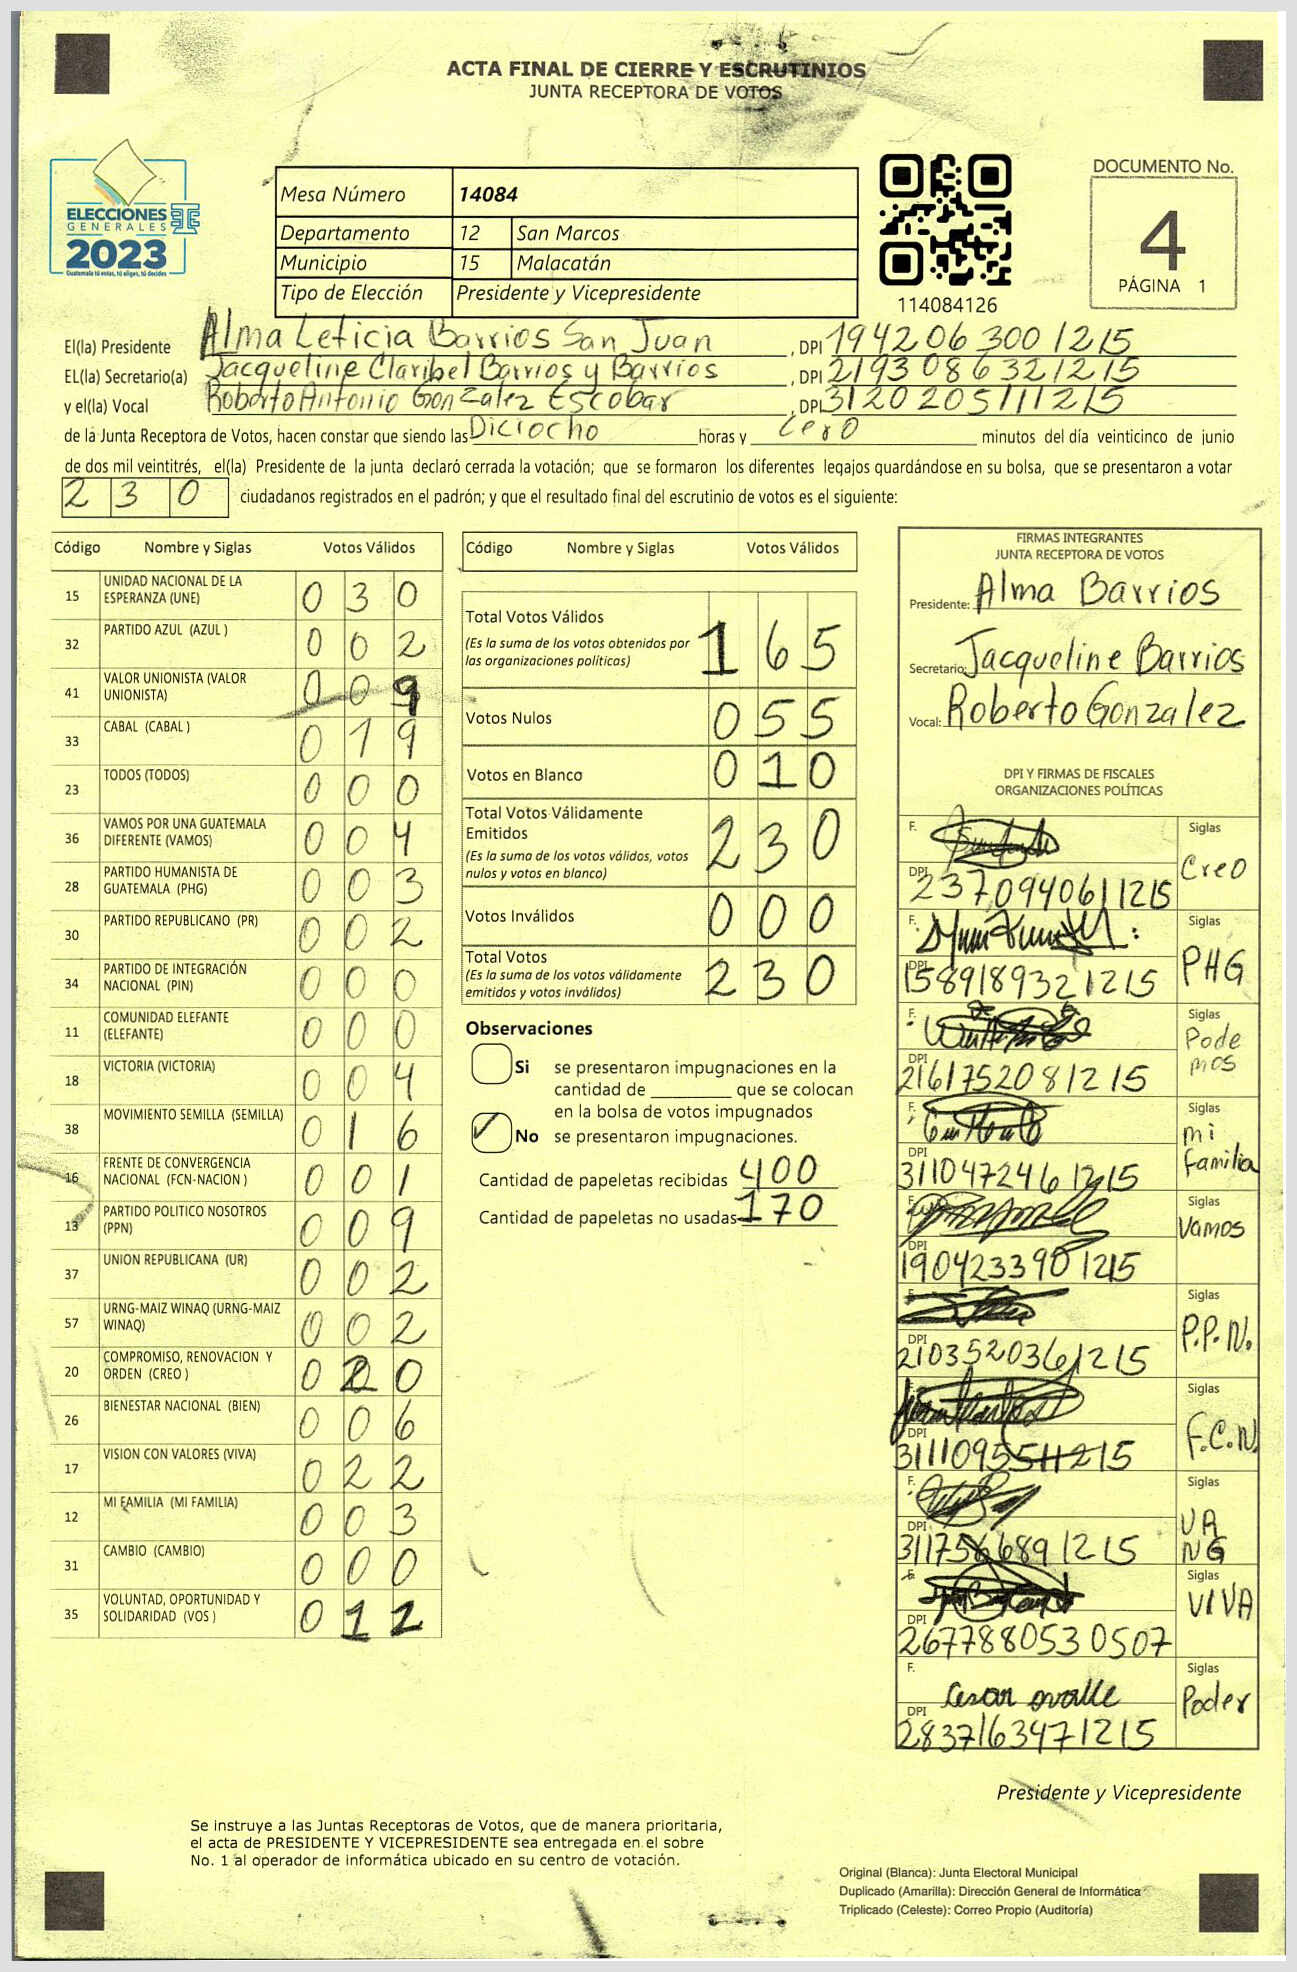 ACTA FINAL DE CIERRE Y ESCRUTINIOS
JUNTA RECEPTORA DE VOTOS
ELECCIONES
GENERALES
2023
Guatemala tú votas, tú eliges, tú decides
Mesa Número 14084
Departamento 12 San Marcos
Municipio 15 Malacatán
Tipo de Elección Presidente y Vicepresidente
114084126
DOCUMENTO No.
4
PÁGINA 1
El(la) Presidente Alma Leticia Barrios San Juan , DPI 1942063001215
EL(la) Secretario(a) Jacqueline Claribel Barrios y Barrios , DPI 2193086321215
y el(la) Vocal Roberto Antonio Gonzalez Escobar , DPI 3120205111215
de la Junta Receptora de Votos, hacen constar que siendo las Dieciocho horas y cero minutos del día veinticinco de junio
de dos mil veintitrés, el(la) Presidente de la junta declaró cerrada la votación; que se formaron los diferentes legajos quardándose en su bolsa, que se presentaron a votar
230 ciudadanos registrados en el padrón; y que el resultado final del escrutinio de votos es el siguiente:
Código Nombre y Siglas Votos Válidos
15 UNIDAD NACIONAL DE LA ESPERANZA (UNE) 0 3 0
32 PARTIDO AZUL (AZUL ) 0 0 2
41 VALOR UNIONISTA (VALOR UNIONISTA) 0 0 9
33 CABAL (CABAL ) 0 1 9
23 TODOS (TODOS) 0 0 0
36 VAMOS POR UNA GUATEMALA DIFERENTE (VAMOS) 0 0 4
28 PARTIDO HUMANISTA DE GUATEMALA (PHG) 0 0 3
30 PARTIDO REPUBLICANO (PR) 0 0 2
34 PARTIDO DE INTEGRACIÓN NACIONAL (PIN) 0 0 0
11 COMUNIDAD ELEFANTE (ELEFANTE) 0 0 0
18 VICTORIA (VICTORIA) 0 0 4
38 MOVIMIENTO SEMILLA (SEMILLA) 0 1 6
16 FRENTE DE CONVERGENCIA NACIONAL (FCN-NACION ) 0 0 1
13 PARTIDO POLITICO NOSOTROS (PPN) 0 0 9
37 UNION REPUBLICANA (UR) 0 0 2
57 URNG-MAIZ WINAQ (URNG-MAIZ WINAQ) 0 0 2
20 COMPROMISO, RENOVACION Y ORDEN (CREO ) 0 2 0
26 BIENESTAR NACIONAL (BIEN) 0 0 6
17 VISION CON VALORES (VIVA) 0 2 2
12 MI FAMILIA (MI FAMILIA) 0 0 3
31 CAMBIO (CAMBIO) 0 0 0
35 VOLUNTAD, OPORTUNIDAD Y SOLIDARIDAD (VOS ) 0 1 2
Código Nombre y Siglas Votos Válidos
Total Votos Válidos 1 6 5
(Es la suma de los votos obtenidos por
las organizaciones politicas)
Votos Nulos 0 5 5
Votos en Blanco 0 1 0
Total Votos Válidamente
Emitidos 2 3 0
(Es la suma de los votos válidos, votos
nulos y votos en blanco)
Votos Inválidos 0 0 0
Total Votos 2 3 0
(Es la suma de los votos válidamente
emitidos y votos inválidos)
Observaciones
Si se presentaron impugnaciones en la
cantidad de ________ que se colocan
en la bolsa de votos impugnados
No se presentaron impugnaciones.
Cantidad de papeletas recibidas 400
Cantidad de papeletas no usadas 170
FIRMAS INTEGRANTES
JUNTA RECEPTORA DE VOTOS
Presidente: Alma Barrios
Secretario: Jacqueline Barrios
Vocal: Roberto Gonzalez
DPI Y FIRMAS DE FISCALES
ORGANIZACIONES POLÍTICAS
F. Siglas Creo
DPI 2370940611215
F. Siglas PHG
DPI 1589189321215
F. Siglas Podemos
DPI 2161752081215
F. Siglas mi familia
DPI 3110472461215
F. Siglas Vamos
DPI 1904233901215
F. Siglas P.P.N.
DPI 2103520361215
F. Siglas F.C.N.
DPI 3111095511215
F. Siglas
DPI
F. Siglas VIVA
DPI 2677880530507
F. Cesar ovalle Siglas Poder
DPI 2837163471215
Presidente y Vicepresidente
Se instruye a las Juntas Receptoras de Votos, que de manera prioritaria,
el acta de PRESIDENTE Y VICEPRESIDENTE sea entregada en el sobre
No. 1 al operador de informática ubicado en su centro de votación.
Original (Blanca): Junta Electoral Municipal
Duplicado (Amarilla): Dirección General de Informática
Triplicado (Celeste): Correo Propio (Auditoría)